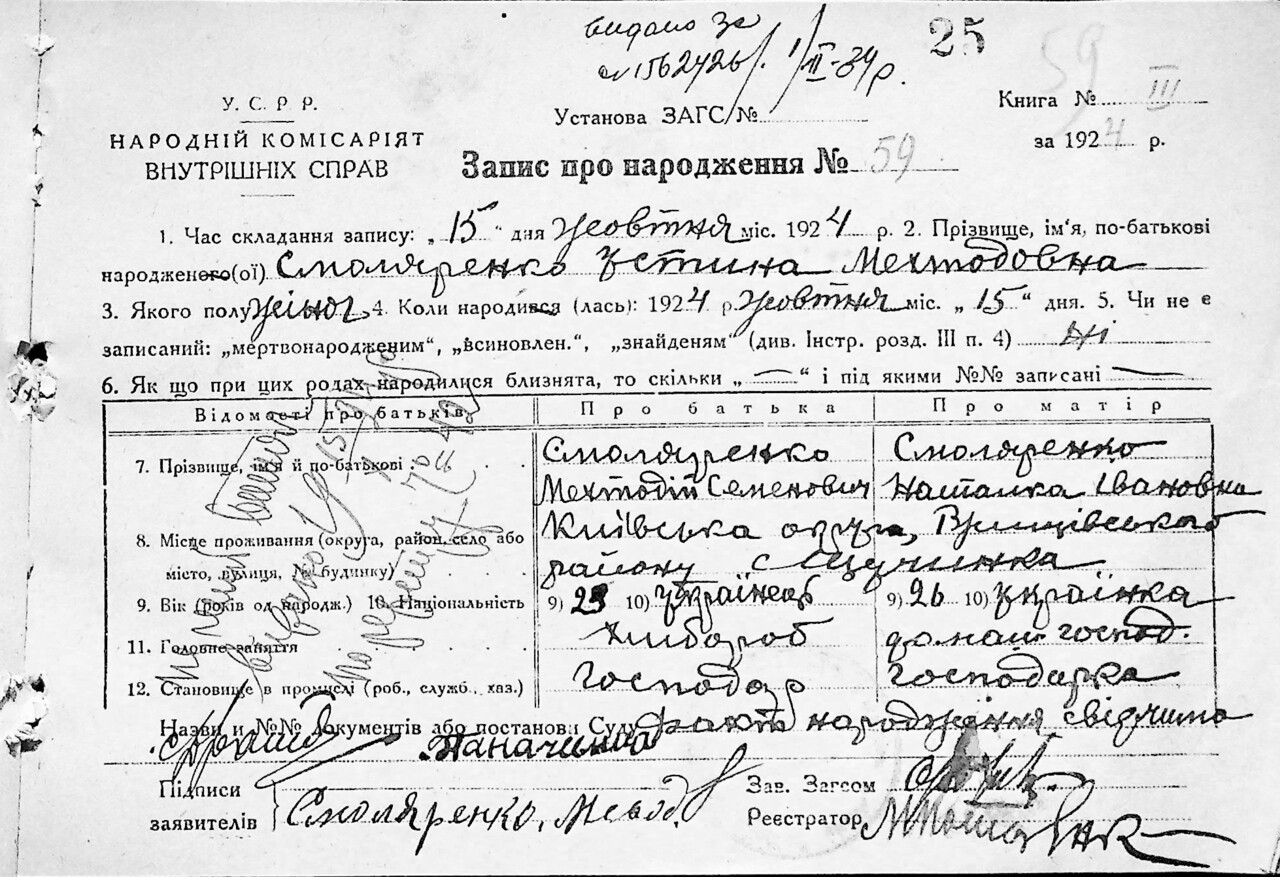 видано за
№ 1562426/. 1/II-34 р.
25
59
У. С. Р. Р.
НАРОДНІЙ КОМІСАРІЯТ
ВНУТРІШНІХ СПРАВ
Установа ЗАГС/№
Книга № III
за 1924 р.
Запис про народження № 59
1. Час складання запису: „15“ дня жовтня міс. 1924 р. 2. Прізвище, ім'я, по-батькові
народженого(ої) Смоляренко Устина Мехтодовна
3. Якого полу жіног 4. Коли народився (лась): 1924 р. жовтня міс. „15“ дня. 5. Чи не є
записаний: „мертвонародженим“, „всиновлен.“, „знайденям“ (див. Інстр. розд. III п. 4) ні
6. Як що при цих родах народилися близнята, то скільки „—“ і під якими №№ записані —
Відомості про батьків Про батька Про матір
7. Прізвище, ім'я й по-батькові Смоляренко Смоляренко
Мехтодій Семенович Наталка Івановна
8. Місце проживання (округа, район, село або Київська округа,
місто, вулиця, № будинку) району с
9. Вік (років од народж.) 10. Національність 9) 29 10) українець 9) 26 10) українка
11. Головне заняття хибороб домаш. господ.
12. Становище в промислі (роб., служб., хаз.) Господар господарка
Назви и №№ документів або постанови Суду факт народження свідчимо
Підписи
заявителів Смоляренко,
Зав. Загсом
Реєстратор